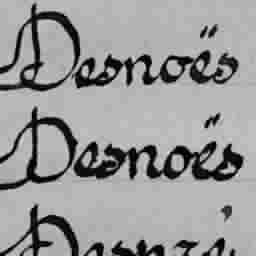 Desnoës
Desnoës